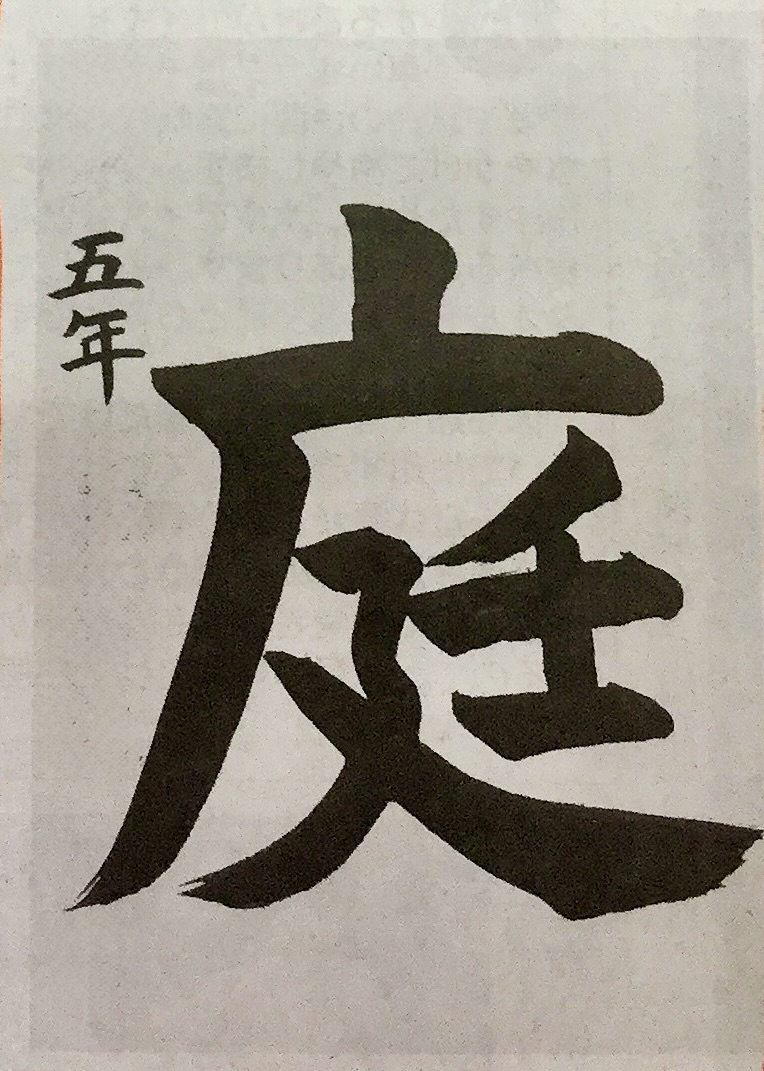 庭
五年